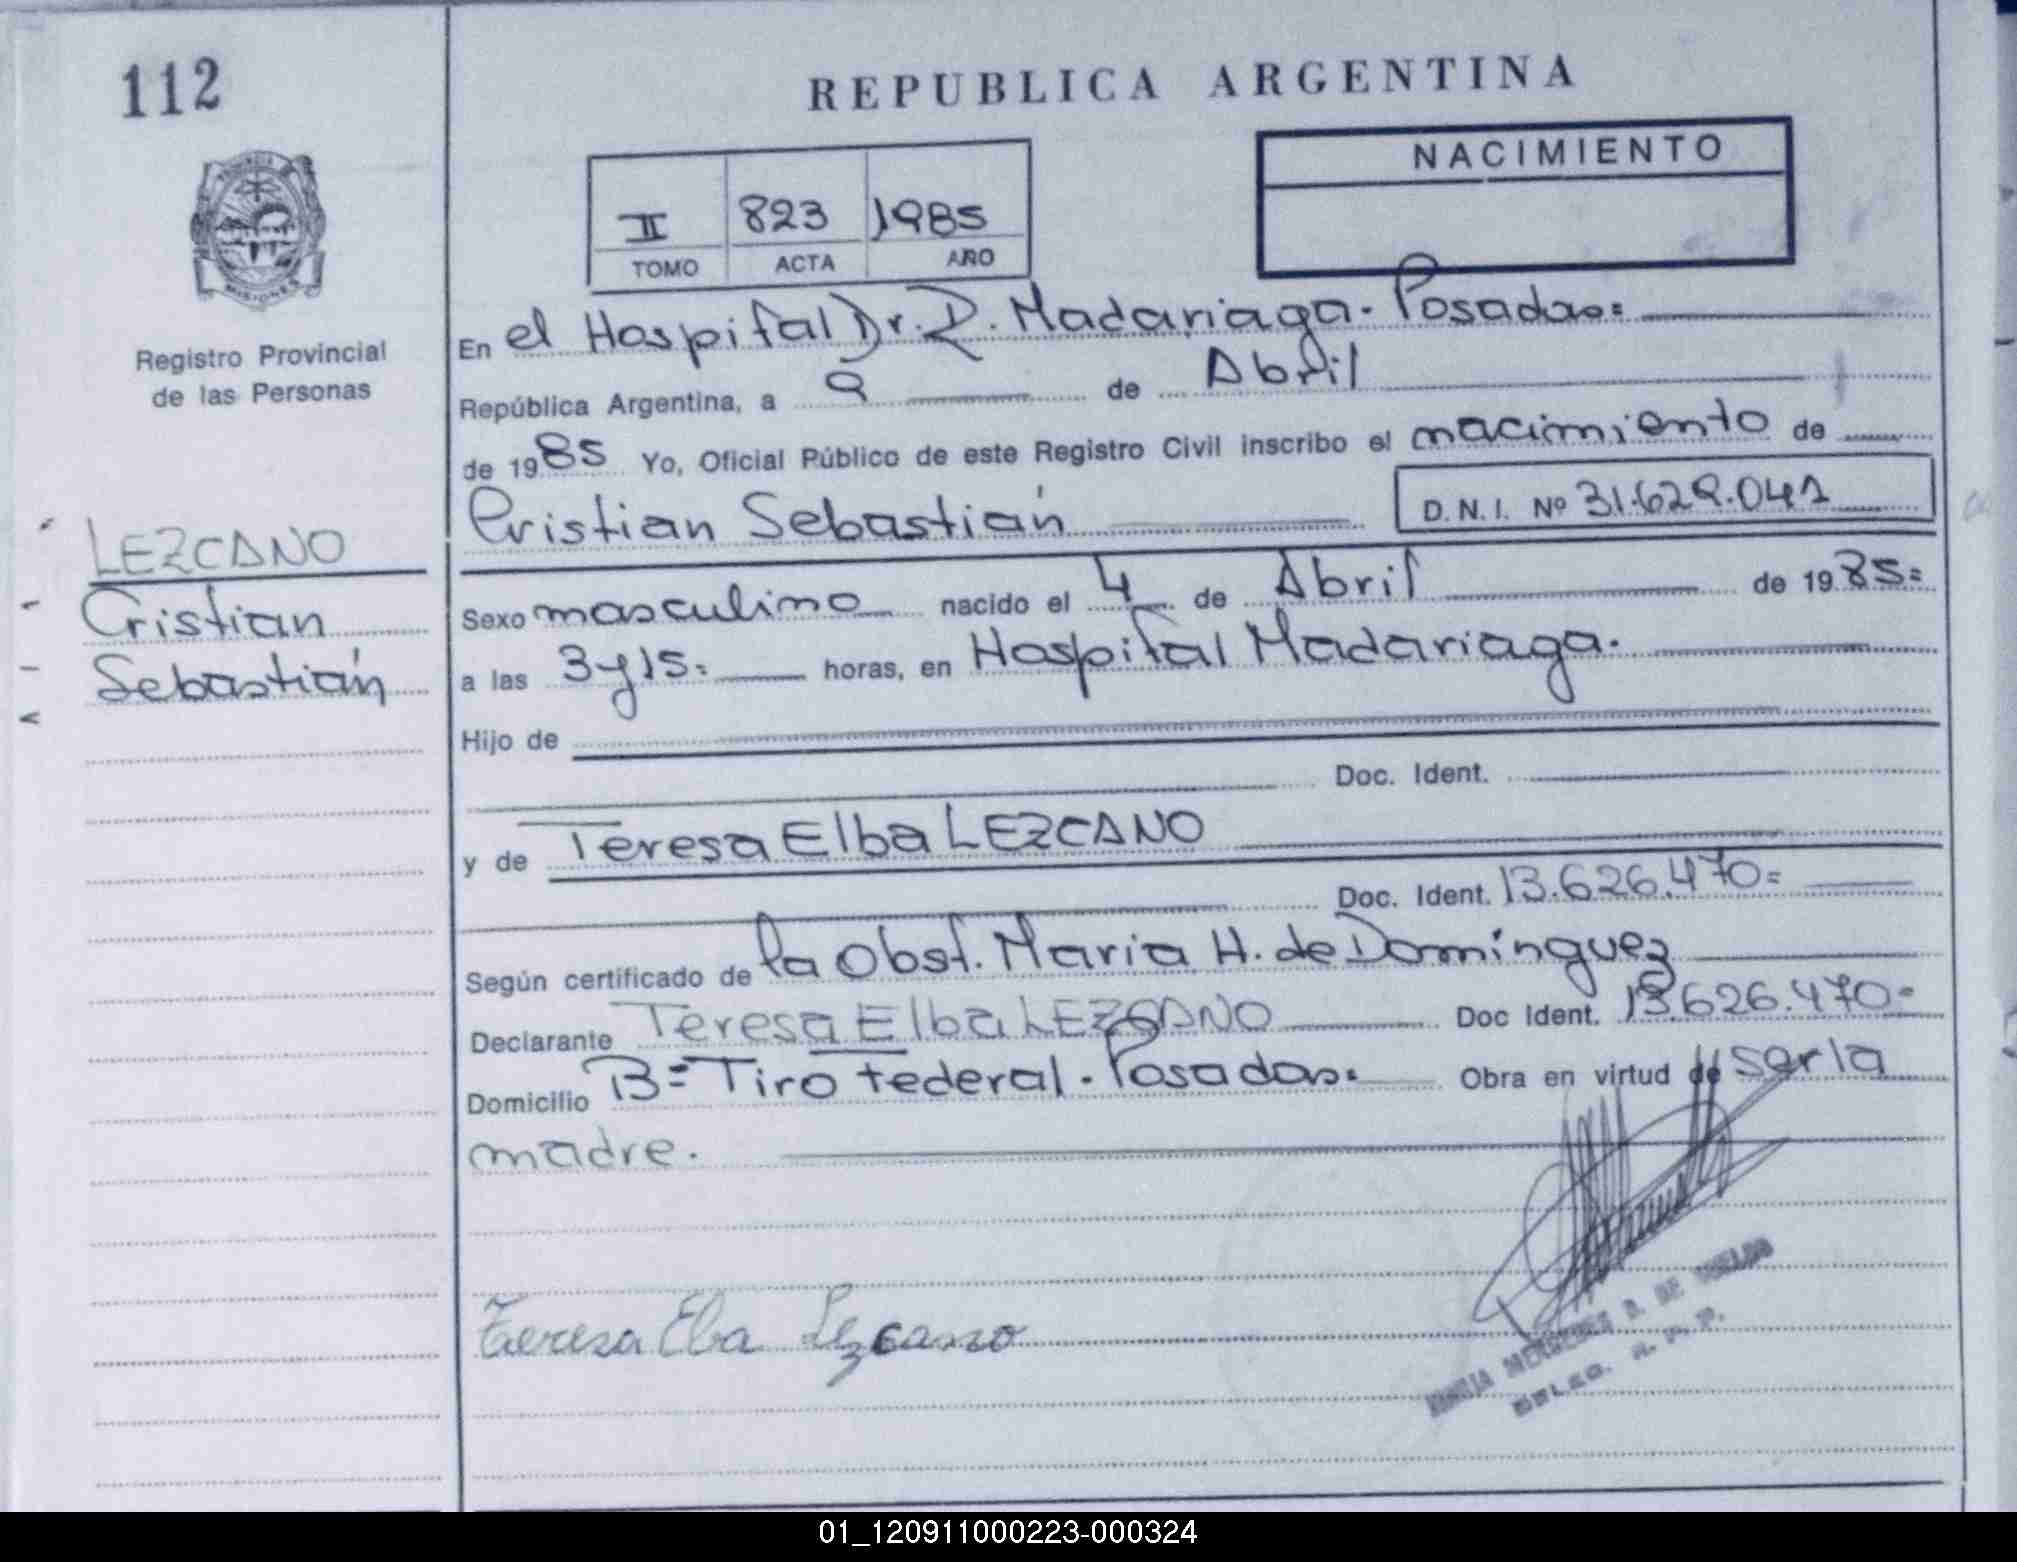 112
REPUBLICA ARGENTINA
NACIMIENTO
II 823 1985
TOMO ACTA AÑO
MISIONES
Registro Provincial
de las Personas
En el Hospital Dr. R. Madariaga. Posadas=
República Argentina, a 9 de Abril
de 1985 Yo, Oficial Público de este Registro Civil inscribo el nacimiento de
Cristian Sebastián D.N.I. Nº 31.629.041
LEZCANO
Cristian
Sebastián
Sexo masculino nacido el 4 de Abril de 1985=
a las 3 y 15= horas, en Hospital Madariaga.
Hijo de
Doc. Ident.
y de Teresa Elba LEZCANO
Doc. Ident. 13.626.470=
Según certificado de la Obst. Maria H. de Domínguez
Declarante Teresa Elba LEZCANO Doc Ident. 13.626.470=
Domicilio B= Tiro Federal. Posadas= Obra en virtud de ser la
madre.
Teresa Elba Lezcano
MERCEDES DE
01_120911000223-000324